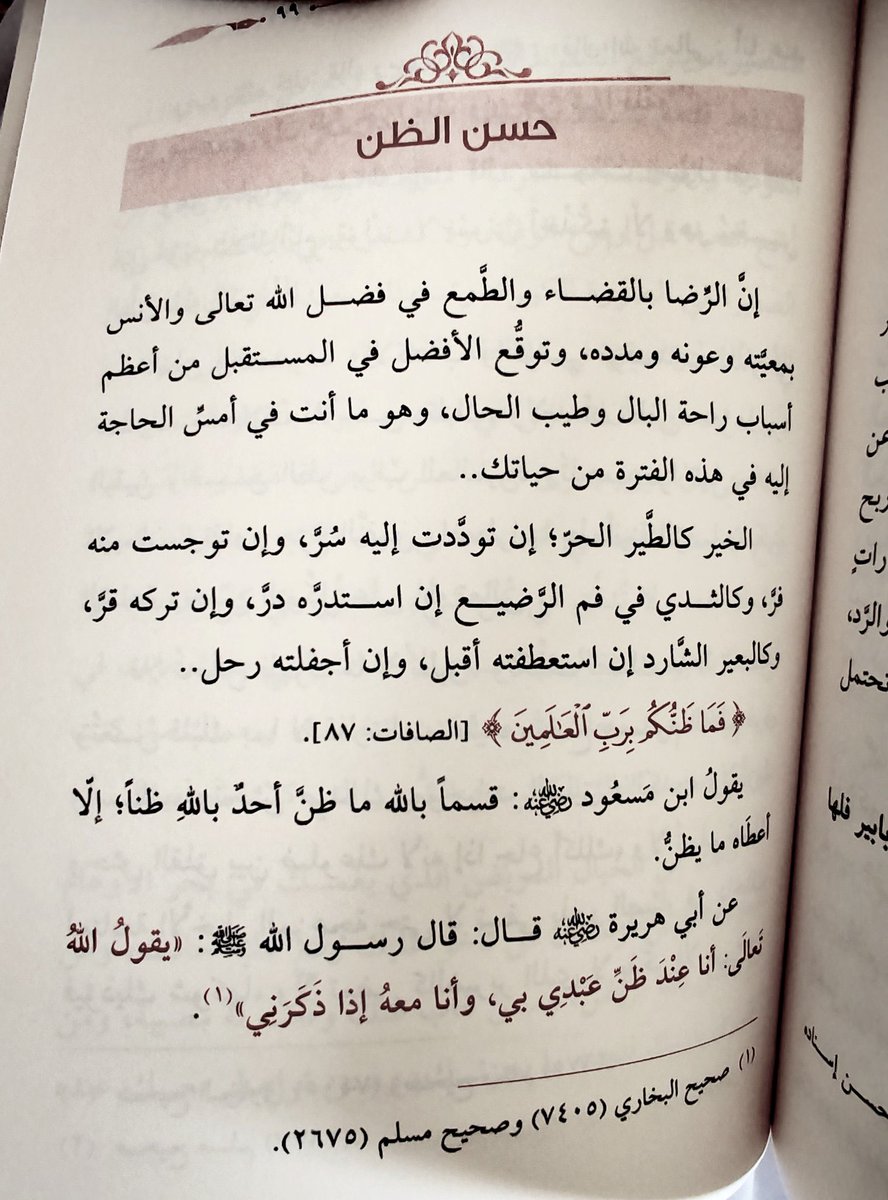 ٩٩
حسن الظن
إنَّ الرِّضا بالقضاء والطَّمع في فضل الله تعالى والأنس
بمعيَّته وعونه ومدده، وتوقُّع الأفضل في المستقبل من أعظم
أسباب راحة البال وطيب الحال، وهو ما أنت في أمسِّ الحاجة
إليه في هذه الفترة من حياتك..
الخير كالطَّير الحرّ؛ إن تودَّدت إليه سُرَّ، وإن توجست منه
فرَّ، وكالثدي في فم الرَّضيع إن استدرَّه درَّ، وإن تركه قرَّ،
وكالبعير الشَّارد إن استعطفته أقبل، وإن أجفلته رحل..
﴿فَمَا ظَنُّكُم بِرَبِّ ٱلْعَـٰلَمِينَ﴾ [الصافات: ٨٧].
يقولُ ابن مَسعُود رضي الله عنه: قسماً بالله ما ظنَّ أحدٌ باللهِ ظناً؛ إلّا
أعطَاه ما يظنُّ.
عن أبي هريرة رضي الله عنه قال: قال رسول الله ﷺ: «يقولُ اللهُ
تَعالَى: أنا عِنْدَ ظَنِّ عَبْدِي بي، وأنا معهُ إذا ذَكَرَنِي»(١).
(١) صحيح البخاري (٧٤٠٥) وصحيح مسلم (٢٦٧٥).
عن
ربح
والرَّد،
تحتمل
فلها
حسن إسناده